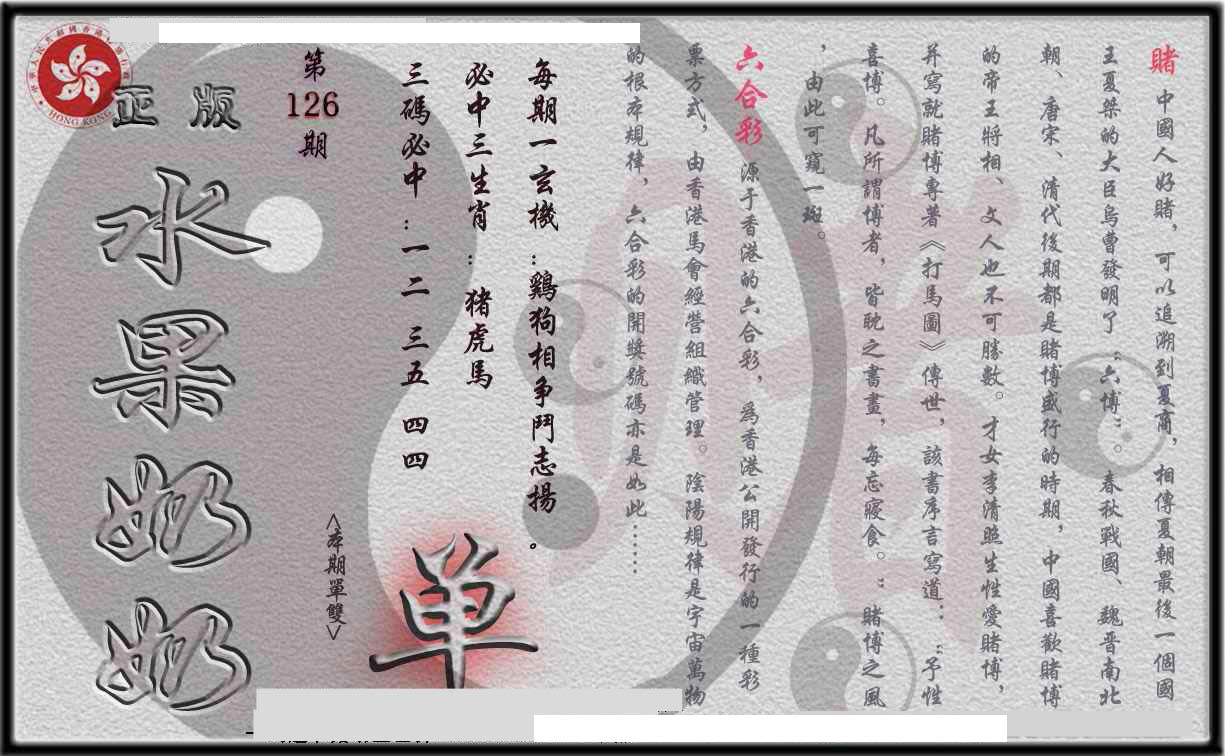 賭 中國人好賭，可以追溯到夏商，相傳夏朝最後一個國
王夏桀的大臣烏曹發明了“六博”春秋戰國、魏晉南北
朝、唐宋、清代後期都是賭博盛行的時期，中國喜歡賭博
的帝王將相、文人也不可勝數。才女李清照生性愛賭博，
并寫就賭博專著《打馬圖》傳世，該書序言寫道：“予性
喜博。凡所謂博者，皆耽之書畫，每忘寢食。”賭博之風
，由此可窺一斑。
六合彩 源于香港的六合彩，為香港公開發行的一種彩
票方式，由香港馬會經營組織管理。陰陽規律是宇宙萬物
的根本規律，六合彩的開獎號碼亦是如此……
每期一玄機：鷄狗相爭鬥志揚。
必中三生肖：猪虎馬
三碼必中：一二 三五 四四
单
<本期單雙>
第126期
正版
水果奶奶
HONG KONG